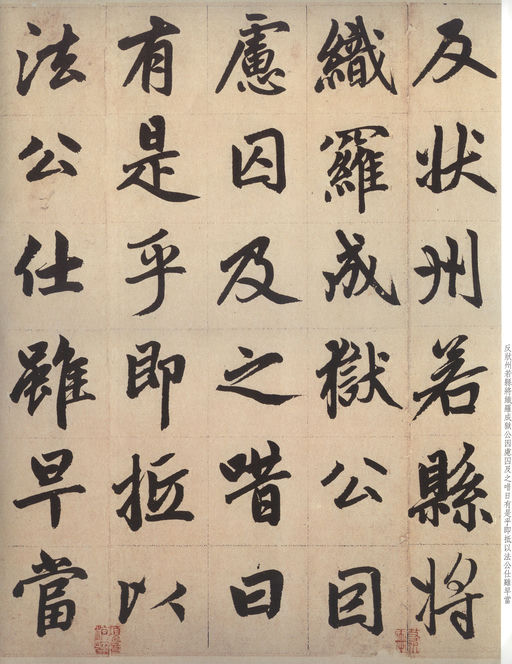 反狀州若縣將
織羅成獄公因
慮囚及之唶曰
有是乎即抵以
法公仕雖早當
反狀州若縣將織羅成獄公因慮囚及之唶曰有是乎即抵以法公仕雖早當